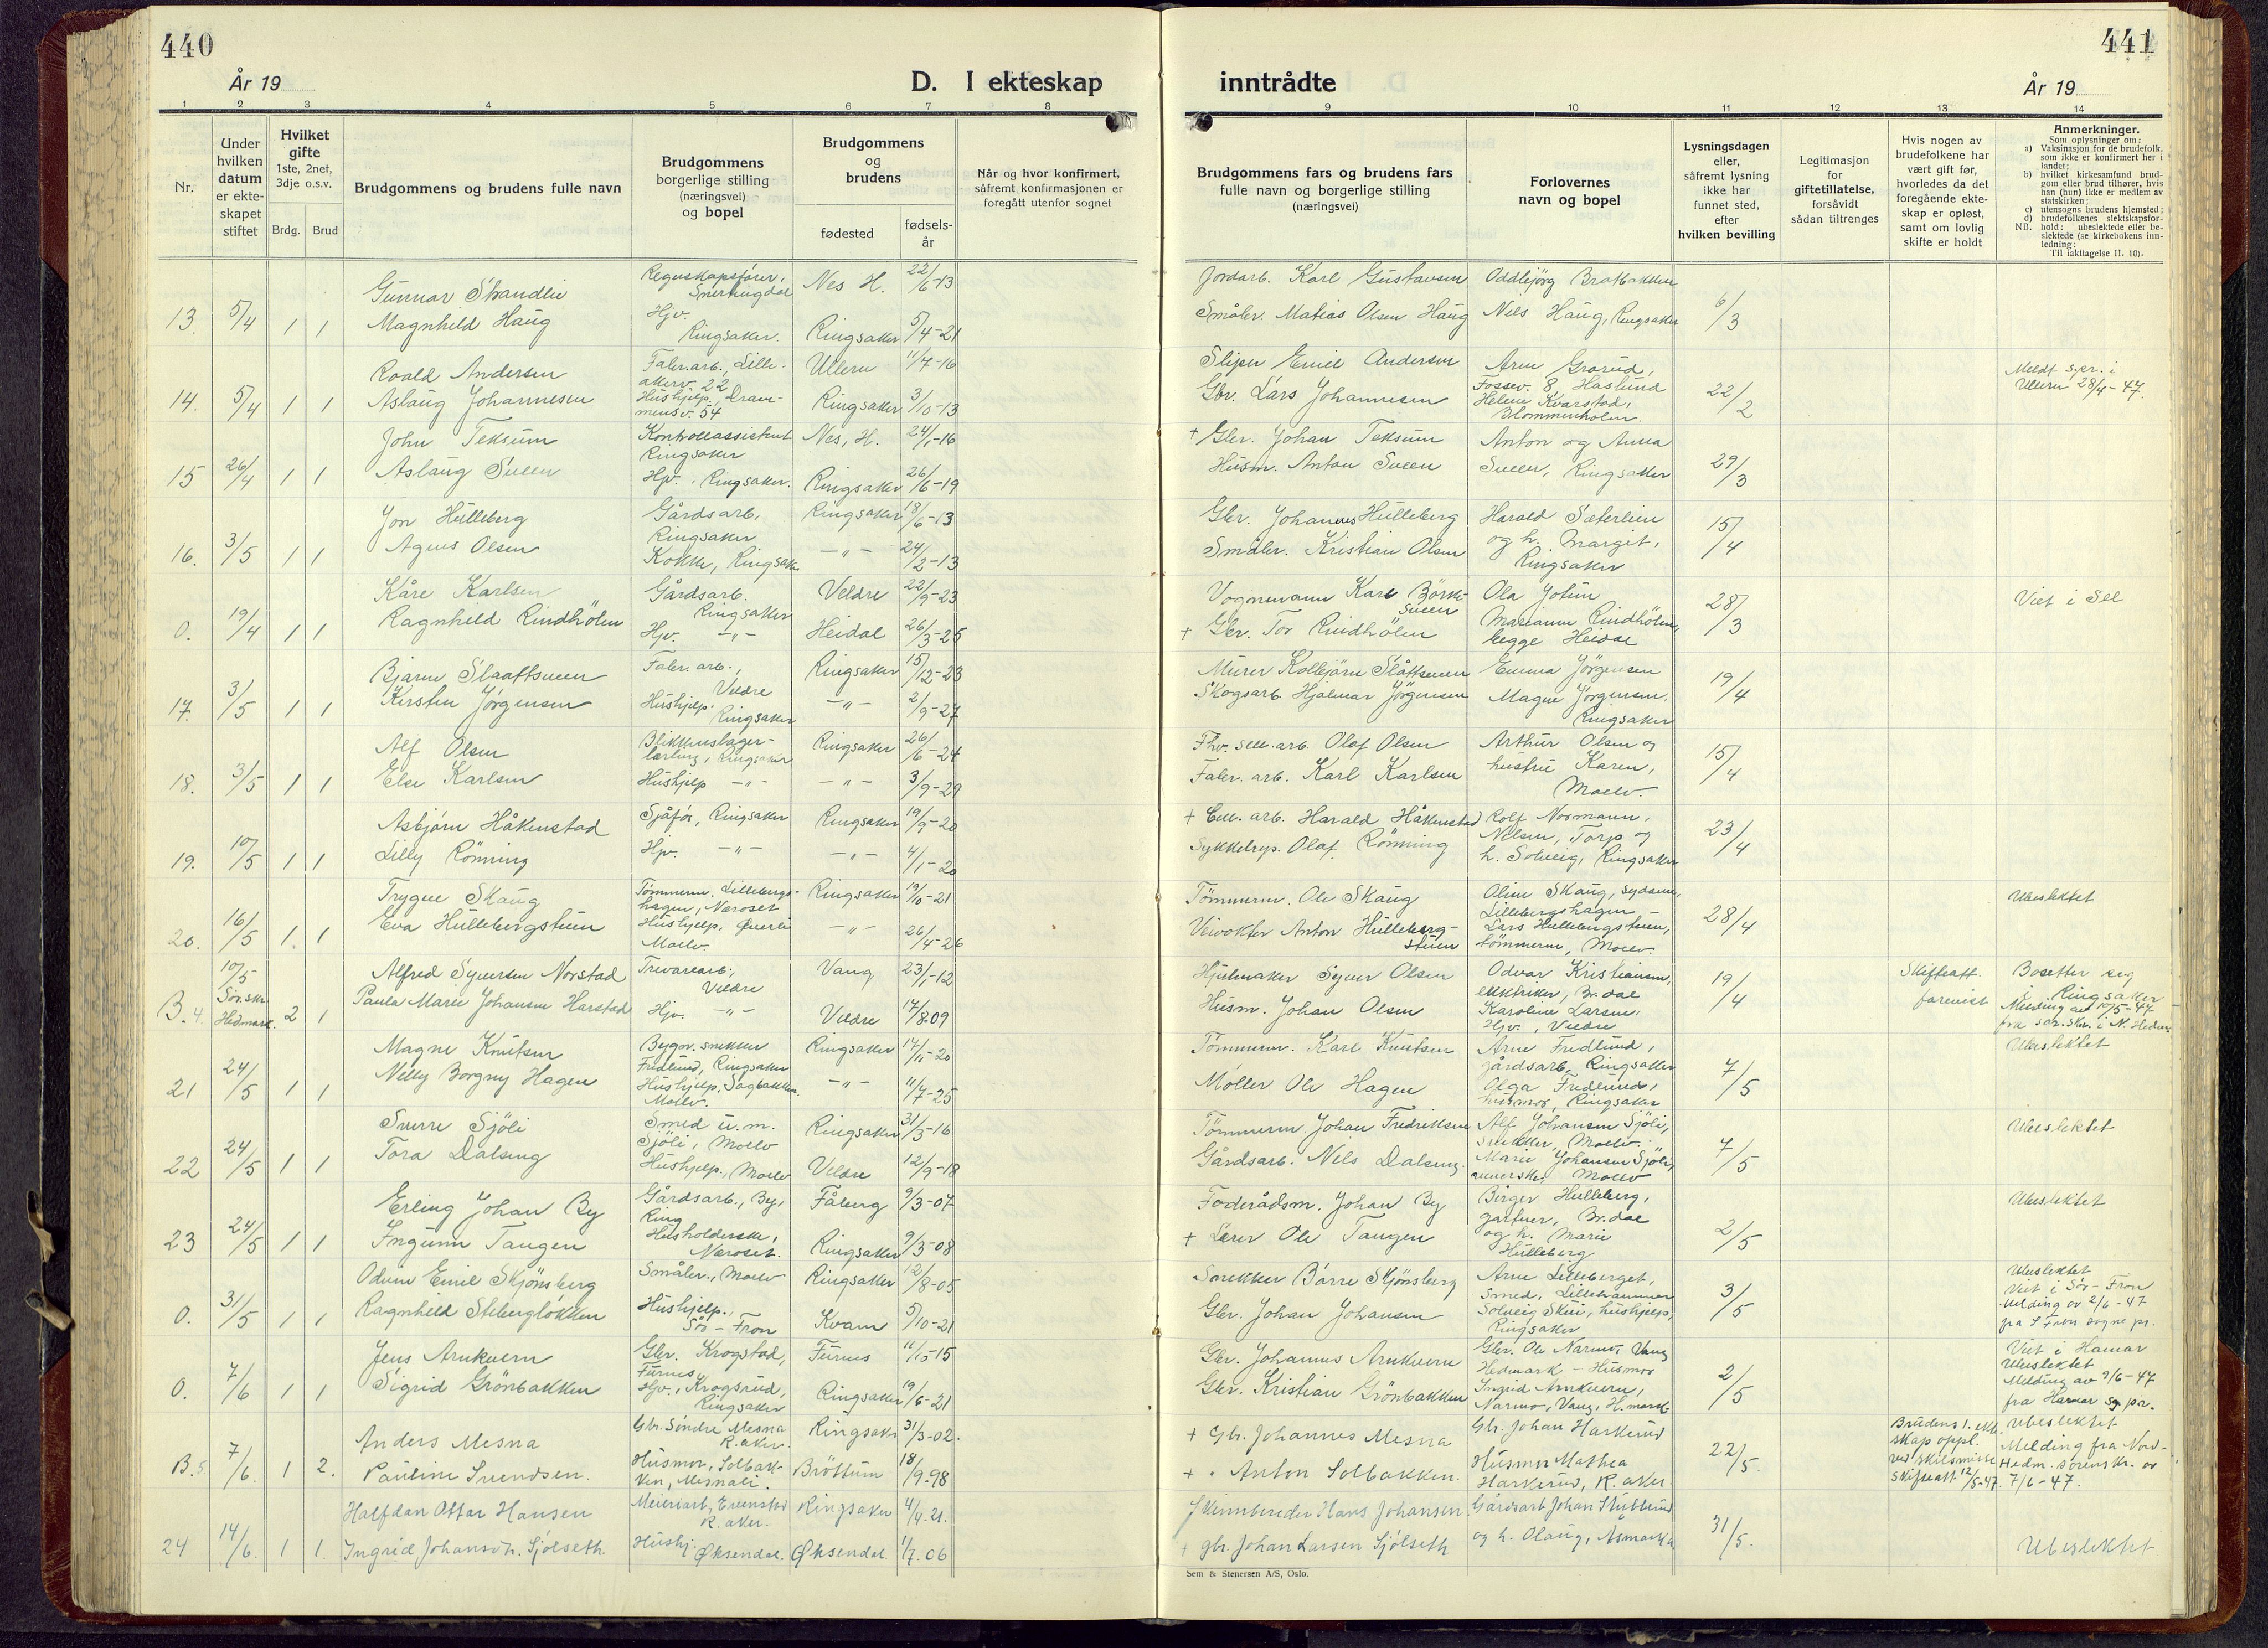 440
441
År 19
D. I ekteskap
inntrådte
År 19
1 2 3 4 5 6 7 8 9 10 11 12 13 14
Nr.
Under hvilken datum er ekteskapet stiftet
Hvilket gifte
1ste, 2net, 3dje o.s.v.
Brdg. Brud
Brudgommens og brudens fulle navn
Brudgommens borgerlige stilling (næringsvei) og bopel
Brudgommens og brudens
fødested
fødsels-år
Når og hvor konfirmert, såfremt konfirmasjonen er foregått utenfor sognet
Brudgommens fars og brudens fars fulle navn og borgerlige stilling (næringsvei)
Forlovernes navn og bopel
Lysningsdagen eller, såfremt lysning ikke har funnet sted, efter hvilken bevilling
Legitimasjon for giftetillatelse, forsåvidt sådan tiltrenges
Hvis nogen av brudefolkene har vært gift før, hvorledes da det foregående ekteskap er opløst, samt om lovlig skifte er holdt
Anmerkninger.
Som oplysninger om:
a) Vaksinasjon for de brudefolk, som ikke er konfirmert her i landet;
b) hvilket kirkesamfund brudgom eller brud tilhører, hvis han (hun) ikke er medlem av statskirken;
c) utensogns brudens hjemsted;
d) brudefolkenes slektskapsforhold: ubeslektede eller beslektede (se kirkebokens innledning:
NB.
Til iakttagelse II. 10).
Gunnar Strandlie Regnskapsfører, Snertingdal Nes H. 22/6-13 Jordarb. Karl Gustavsen Oddbjörg Bratbakken
13. 5/4 1 1 Magnhild Haug Hjv. Ringsaker. Ringsaker 5/4-21 Småbr. Matias Olsen Haug Nils Haug, Ringsaker 6/3
Roald Andersen Fabr.arb., Lilleakerv. 22 Ullern 11/7-16 Sliper Emil Andersen Arne Grorud, Fossev. 8, Haslund Meldt spr. i Ullern 28/4-47.
14. 5/4 1 1 Aslaug Johannesen Hushjelp, Drammensv. 54 Ringsaker 3/10-13 Gbr. Lars Johannesen Helene Kvarstad, Blommenholm. 22/2
John Teksum Kontrollassistent Ringsaker Nes, H. 24/1-16 + Gbr. Johan Teksum Anton og Anna
15 26/4 1 1 Aslaug Sveen Hjv., Ringsaker. Ringsaker 26/6-19 Husm. Anton Sveen Sveen, Ringsaker 29/3
Jon Hulleberg Gårdsarb., Ringsaker Ringsaker 18/6-13 Gbr. Johannes Hulleberg Harald Sæterlien
16. 3/5 1 1 Agnes Olsen Kokke, Ringsaker —"— 24/2-13 Småbr. Kristian Olsen og h. Marget, Ringsaker 15/4
Kåre Karlsen Gårdsarb. Ringsaker Veldre 22/9-23 Vognmann Karl Börkesveen Ola Jotun Viet i Sel
0. 19/4 1 1 Ragnhild Rindhölen Hjv. —"— Heidal 26/3-25 + Gbr. Tor Rindhölen Marianne Rindhölen, begge Heidal 28/3
Bjarne Slaattsveen Fabr. arb., Veldre Ringsaker 15/12-23 Murer Kolbjörn Slåttsveen Emma Jörgensen
17. 3/5 1 1 Kirsten Jörgensen Hushjelp. Ringsaker —"— 2/9-27 Skogsarb. Hjalmar Jörgensen Magne Jörgensen, Ringsaker 19/4
Alf Olsen Blikkenslager-lærling, Ringsaker Ringsaker 26/6-24 Fhv. sell. arb. Olaf Olsen Arthur Olsen og
18. 3/5 1 1 Else Karlsen Hushjelp —"— —"— 3/9-29 Fabr. arb. Karl Karlsen hustru Karen, Moelv. 15/4
Asbjørn Håkenstad Sjåfør, Ringsaker Ringsaker 19/9-20 + Cell. arb. Harald Håkenstad Rolf Normann,
19. 10/5 1 1 Lilly Rönning Hjv. —"— —"— 4/1-20 Sykkelrep. Olaf Rönning Nilsen, Torp og h. Solveig, Ringsaker 23/4
Trygve Skaug Tömmerm. Lillebergshagen, Næroset Ringsaker 19/10-21 Tömmerm. Ole Skaug Oline Skaug, sydame, Lillebergshagen Ubeslektet
20. 16/5 1. 1 Eva Hullebergstuen Hushjelp, Överli Moelv. —"— 26/4-26 Veivokter Anton Hullebergstuen Lars Hullebergstuen, tömmerm, Moelv. 28/4
Alfred Syversen Norstad Trevarearb., Veldre Vang 23/1-12 Hjulmaker Syver Olsen Odvar Kristiansen, elektriker, Br.dal Skifteatt. forevist Bosetter seg i Ringsaker
B. 4. 10/5 Sør. skr. Hedmark. 2 1 Paula Marie Johansen Harstad Hjv. —"— Veldre 17/8-09 Husm. Johan Olsen Karoline Larsen, Hjv., Veldre 19/4 Melding av 10/5-47 fra sor. skr. i N. Hedm.
Magne Knutsen Bygn. snekker Fridlund, Ringsaker Ringsaker 17/11-20 Tömmerm. Karl Knutsen Arne Fridlund, gårdsarb, Ringsaker Ubeslektet
21 24/5 1 1 Nelly Borgny Hagen Hushjelp, Sagbakken, Moelv. —"— 11/7-25 Møller Ole Hagen Olga Fridlund, husmor, Ringsaker 7/5
Sverre Sjöli Smed u.m. Sjöli, Moelv Ringsaker 31/3-16 Tömmerm. Johan Fredriksen Alf Johansen Sjöli, snekker, Moelv. Ubeslektet
22 24/5 1 1 Tora Dalseng Hushjelp, Moelv Veldre 12/9-18 Gårdsarb. Nils Dalseng. Marie Johansen Sjöli, Moelv 7/5
Erling Johan By Gårdsarb., By, Ring Fåberg 9/3-07 Foderådsm. Johan By Birger Hulleberg, gartner, Br.dal Ubeslektet
23 24/5 1 1 Ingunn Tangen Husholderske, Næroset. Ringsaker 9/3-08 + Lærer Ole Tangen og h. Marie Hulleberg 2/5
Odum Emil Skjönsberg Småbr., Moelv Ringsaker 12/8-05 Snekker Börre Skjönsberg Arne Lilleberget, Smed, Lillehammer Ubeslektet Viet i Sör-Fron
0. 31/5 1 1 Ragnhild Stebergløkken Hushjelp., Sör-Fron Kvam 5/10-21 Gbr. Johan Johansen Solveig Skui, hushjelp, Ringsaker 3/5 Melding av 2/6-47 fra S Fron sogne pr.
Jens Arnkvern Gbr. Krogstad, Furnes Furnes 11/10-15 Gbr. Johannes Arnkvern Gbr. Ole Narmo, Vang Hedmark - Husmor Viet i Hamar Ubeslektet
0. 7/6 1 1 Sigrid Grönbakken Hjv., Krogsrud, Ringsaker Ringsaker 19/6-21 Gbr. Kristian Grönbakken Ingrid Arnkvern, Narmo, Vang, H.mark 2/5 Melding av 7/6-47 fra Hamar sg pr.
Anders Mesna Gbr. Söndre Mesna R.aker. Ringsaker 31/3-02. + Gbr. Johannes Mesna Gbr. Johan Harkerud Brudens 1. ekteskap oppl. Ubeslektet Melding fra Nord-
B. 5. 7/6. 1 2. Pauline Svendsen. Husmor, Solbakken, Mesnali. Bröttum 18/9-98 + " Anton Solbakken. Husmor Mathea Harkerud, R.aker. 22/5. ved skilsmisse skifteatt 12/5-47. Hedm. sorenskr. av 7/6-47.
Halfdan Ottar Hansen Meieriarb, Evenstad R.aker. Ringsaker 4/4.21. Skinnbereder Hans Johansen Gårdsarb Johan Stubberud
24 14/6. 1 1. Ingrid Johansdt. Sjölseth Hushj. Øksendal. Øksendal. 1/7.06 + gbr. Johan Larsen Sjölseth og h. Olaug, Åsmarka 31/5. Ubeslektet
Sem & Stenersen A/S, Oslo.